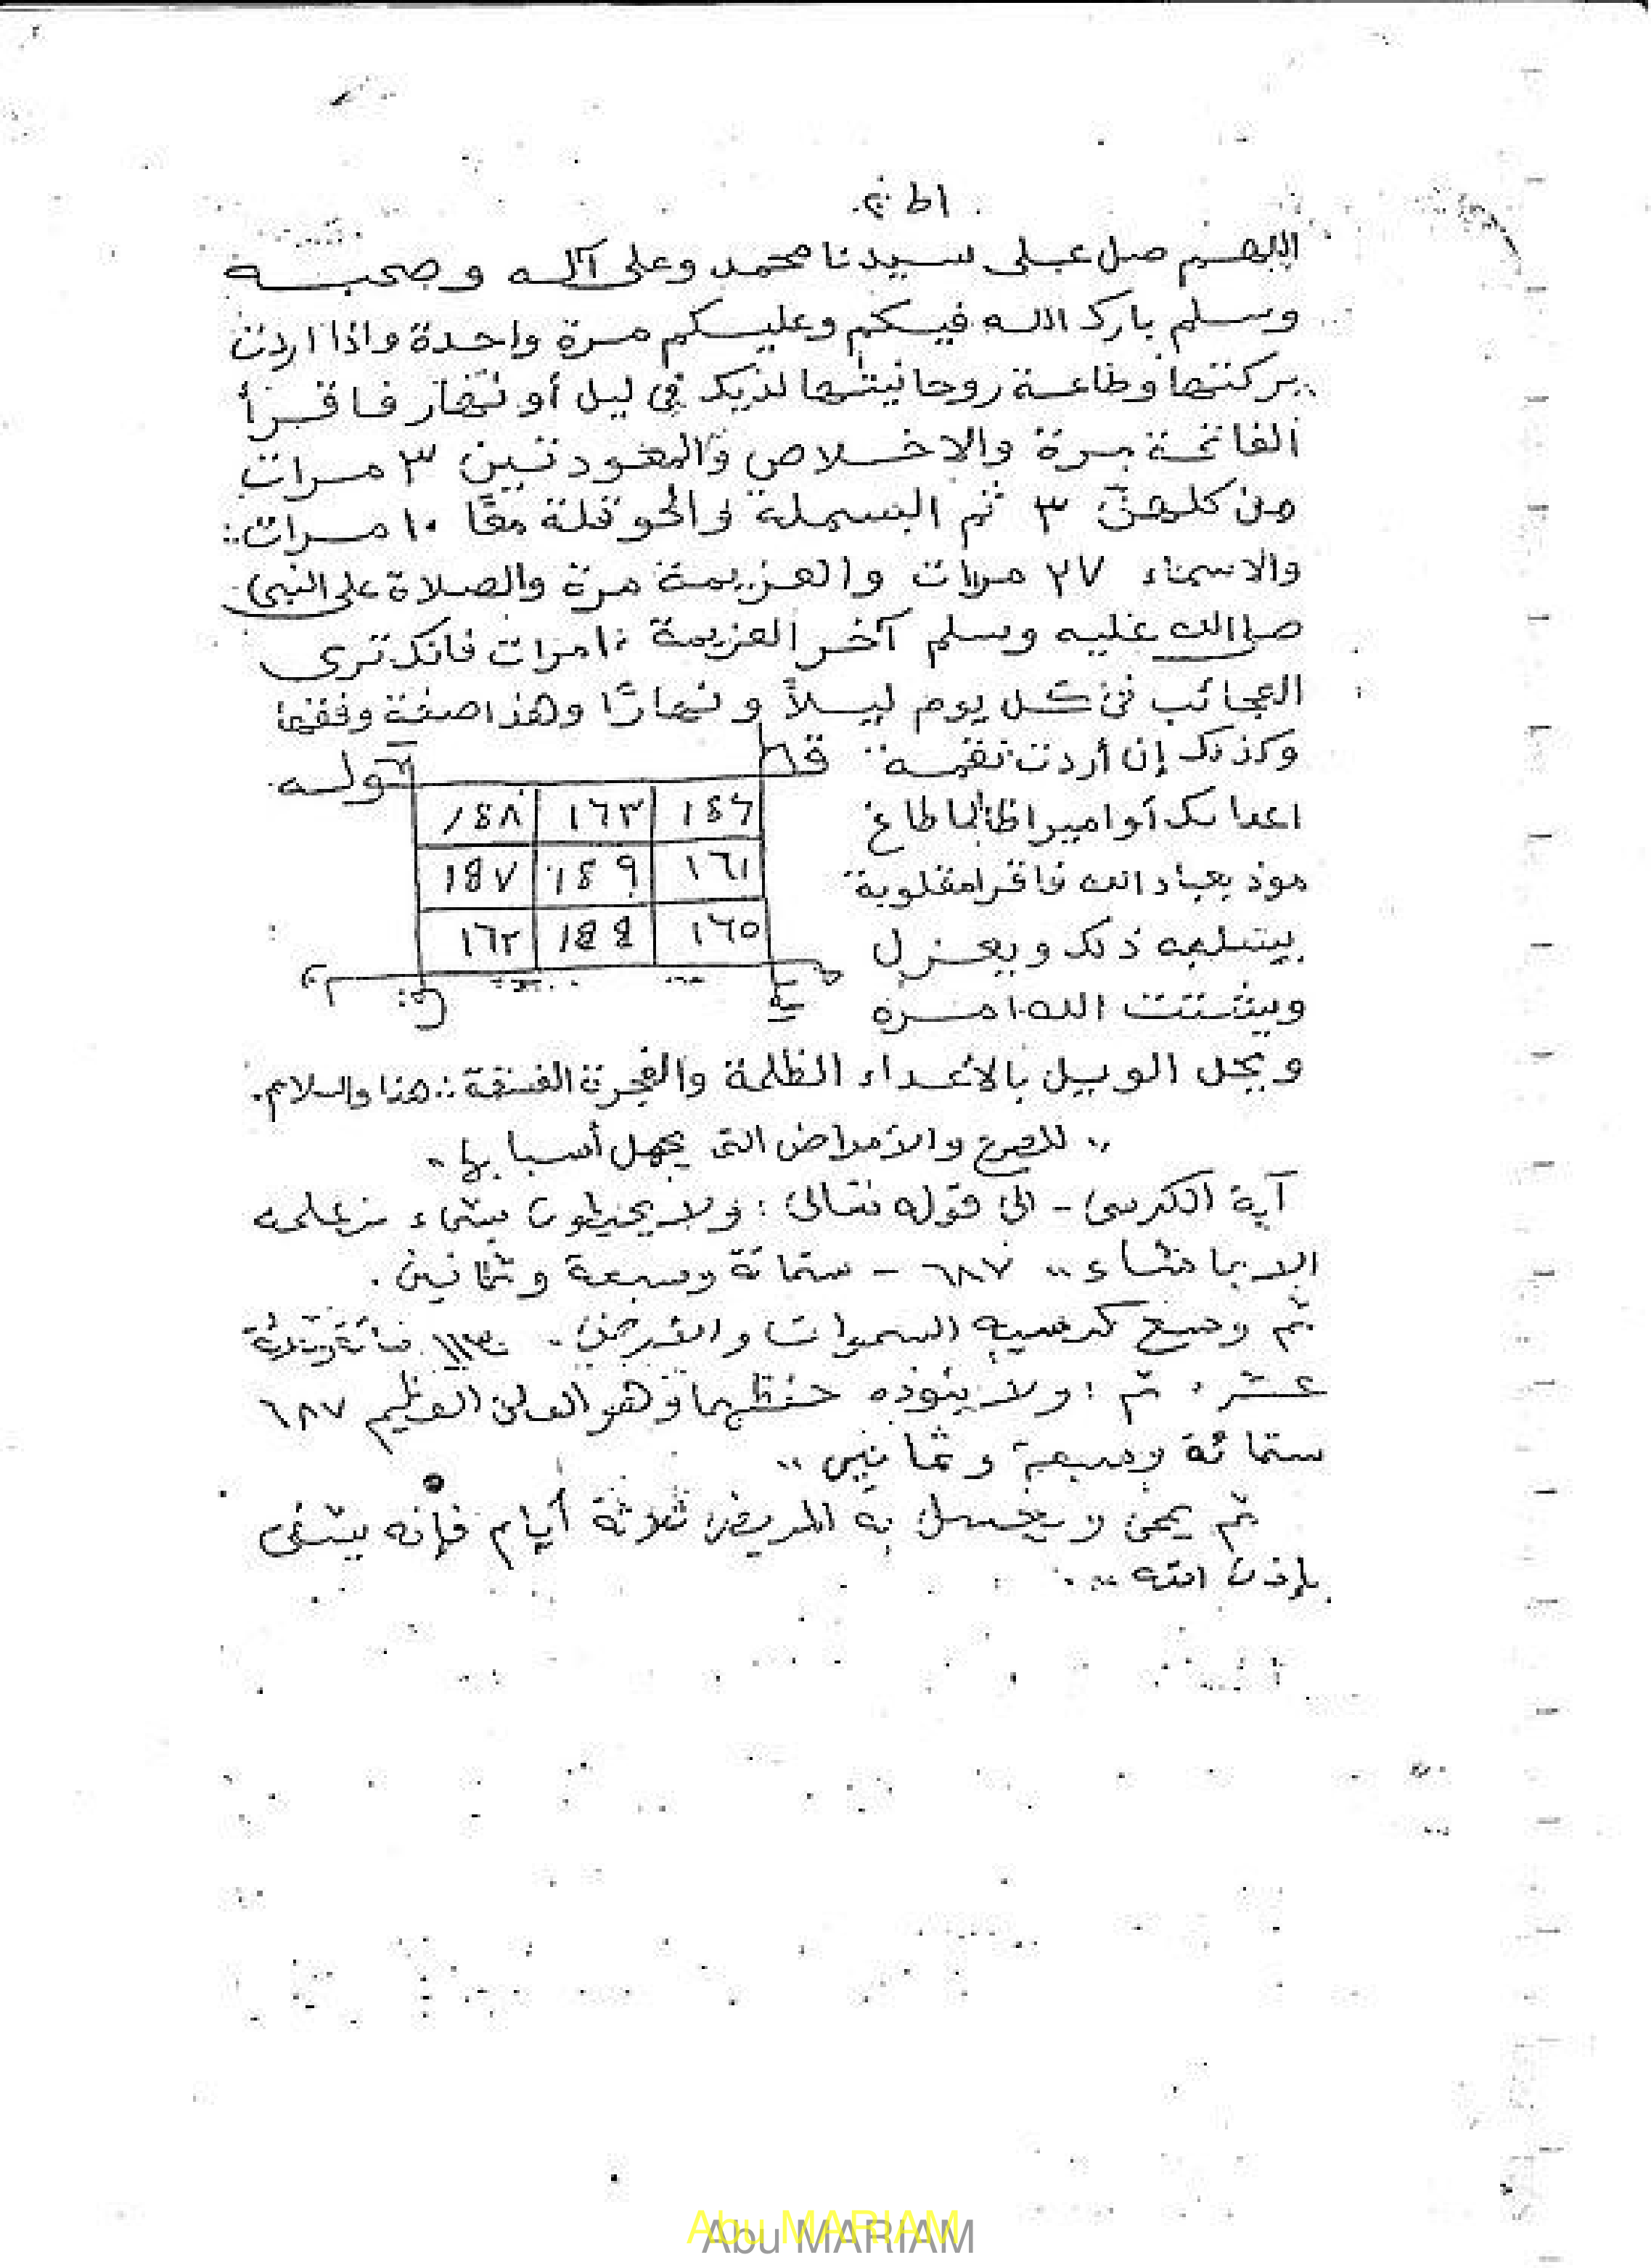 اللهم صل على سيدنا محمد وعلى آله وصحبه
وسلم بارك الله فيكم وعليكم مرة واحدة واذا اردت
بركتها وطاعة روحانيتها لديك في ليل أو نهار فاقرأ
الفاتحة مرة والاخلاص والمعوذتين ٣ مرات
من كلهن ٣ ثم البسملة والحوقلة معًا ١٠ مرات
والاسماء ٢٧ مرات والعزيمة مرة والصلاة على النبي
صلى الله عليه وسلم آخر العزيمة ١٠ مرات فانك ترى
العجائب في كل يوم ليلاً ونهارًا وهذا صفة وفقها
وكذلك إن أردت نقمة
قوله
اعدائك أو اميرا ظالما طاغ
١٦٣
١٦١
موذ بعباد الله فاقرا مقلوبة
١٦٥
١٦٢
ذلك ويعزل
ويشتت الله ١٠ مرة
ويحل الوبيل بالأعداء الظلمة والفجرة الفسقة هذا والسلام.
" للصرع والأمراض التى يجهل أسبابها "
آية الكرسى - الى قوله تعالى : ولا يحيطون بشىء من علمه
الا بما شاء " ٦٨٧ - ستمائة وسبعة وثمانين .
ثم وسع كرسيه السموات والأرض .
عشر . ثم : ولا يئوده حفظهما وهو العلى العظيم ٦٨٧
ستمائة وسبعة وثمانين "
ثم يمحى ويغسل به المريض ثلاثة أيام فإنه يشفى
بإذن الله ..
Abu MARIAM